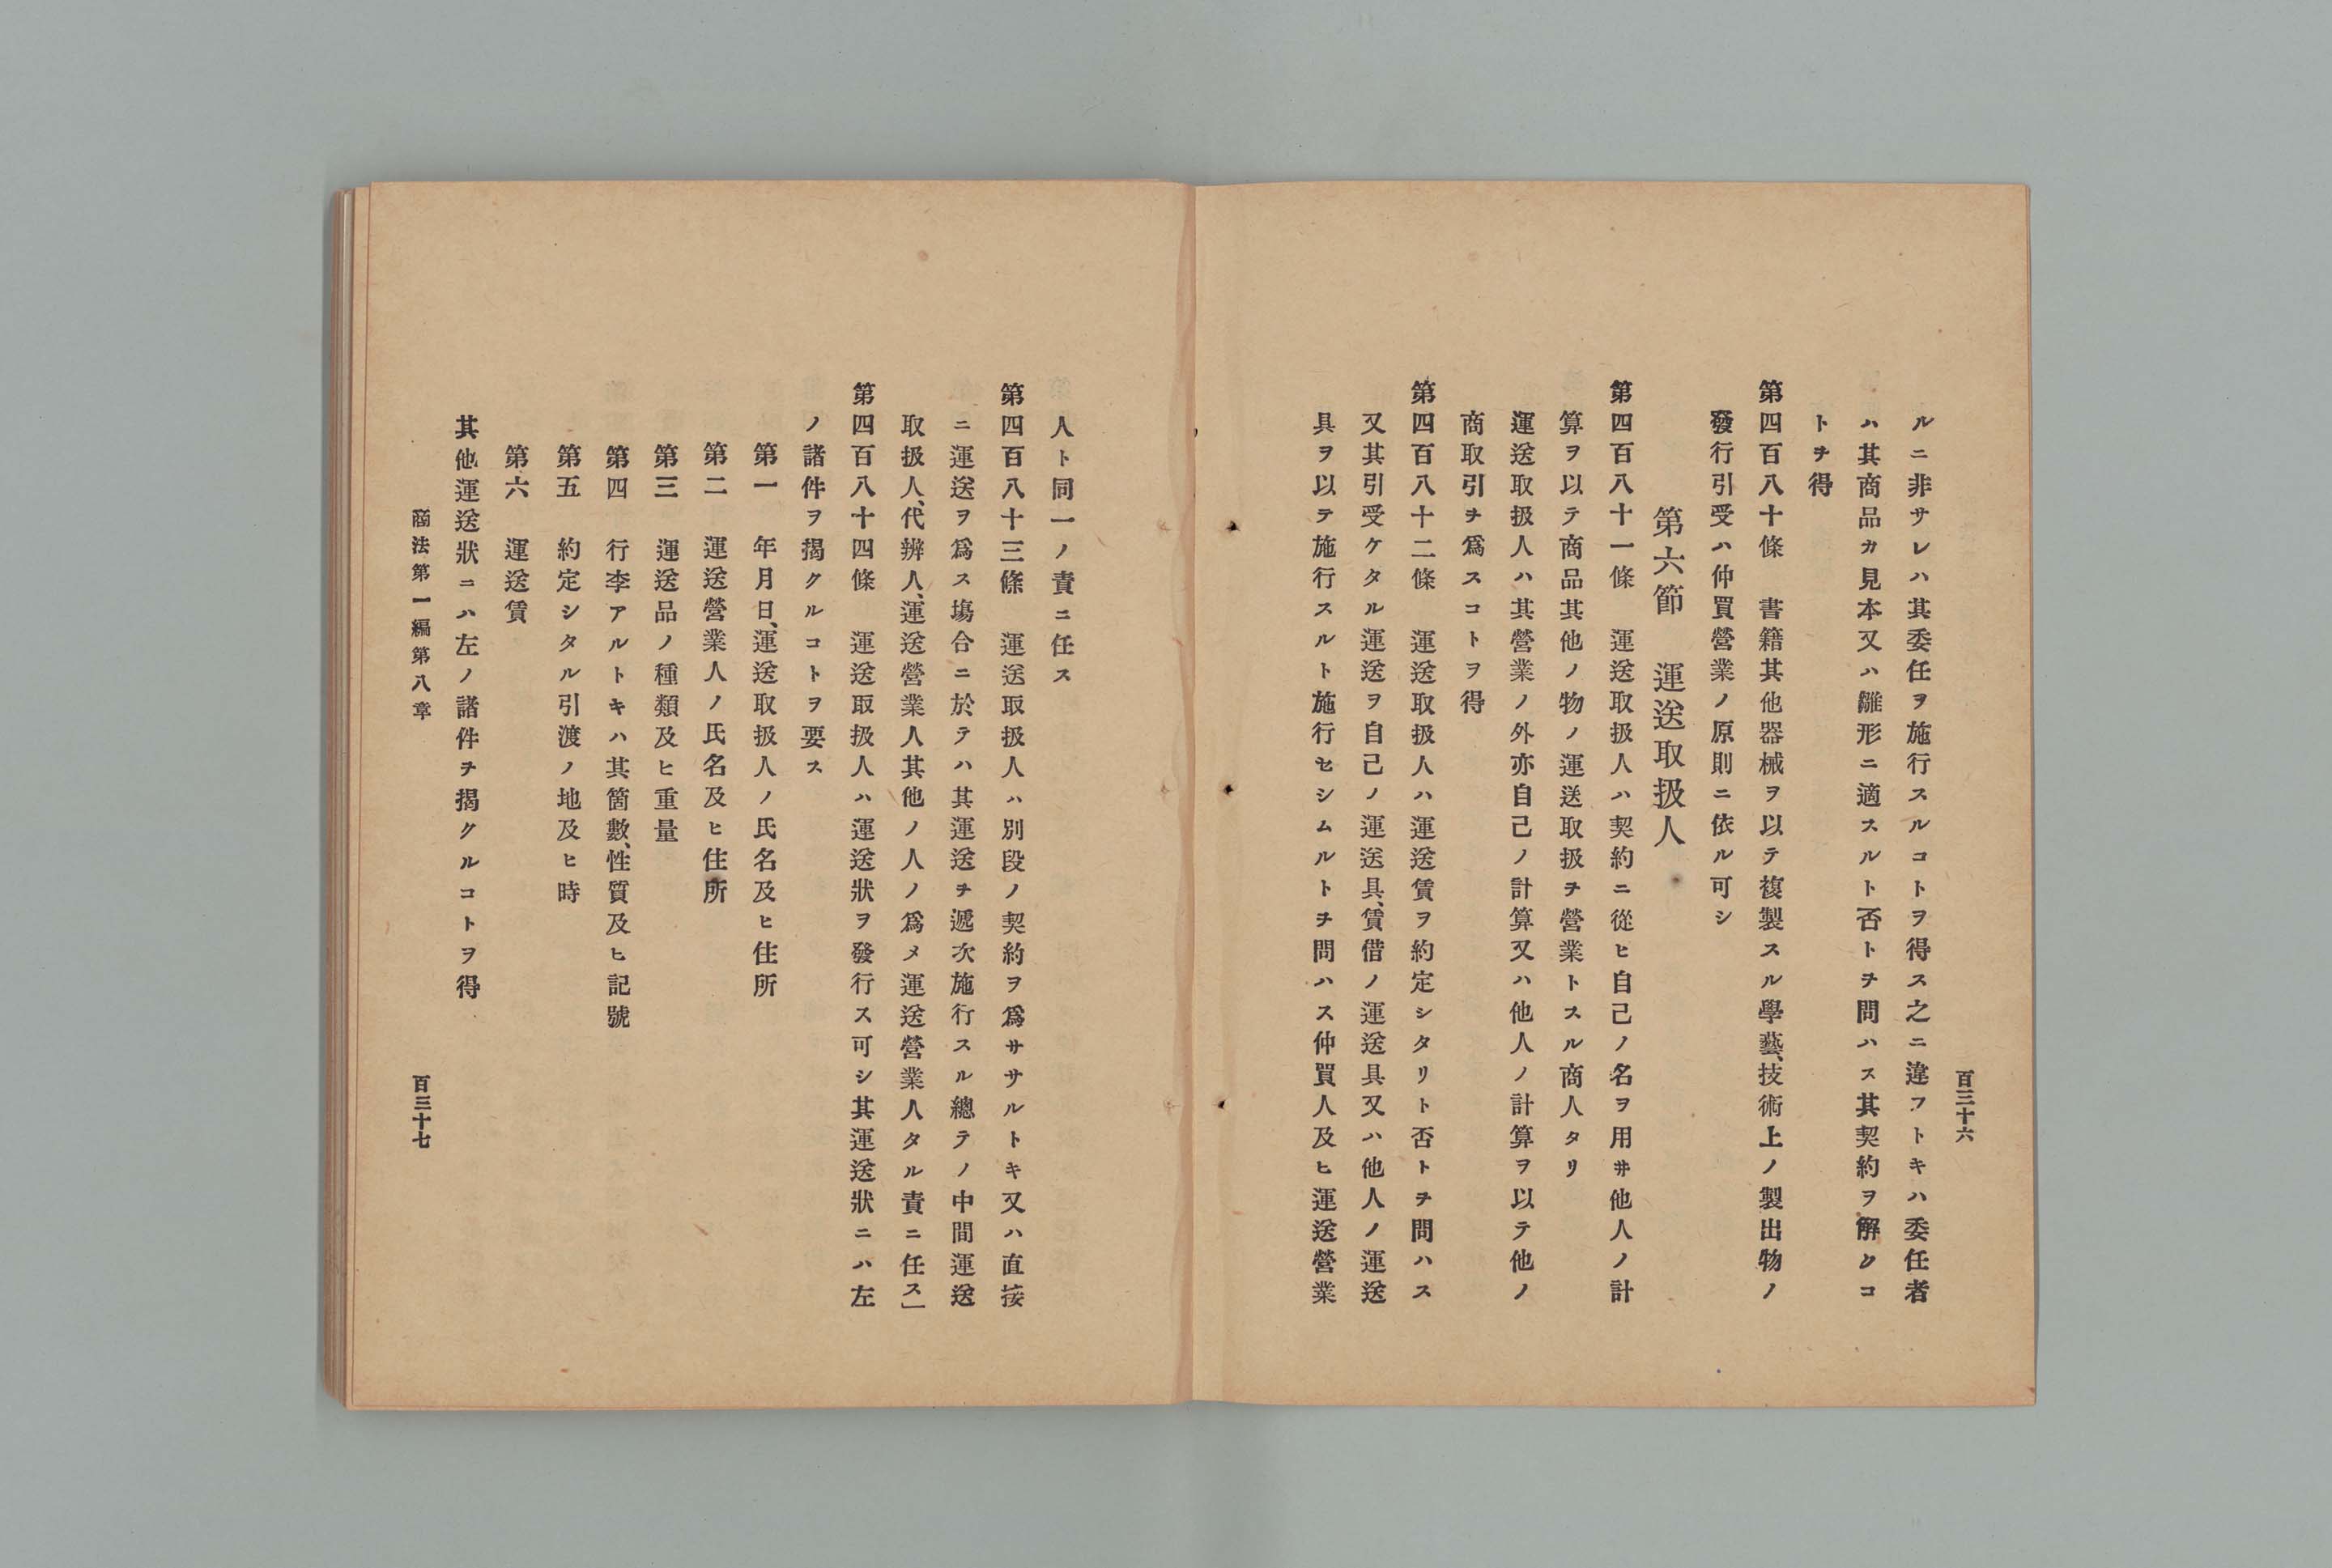 百三十六
ルニ非サレハ其委任ヲ施行スルコトヲ得ス之ニ違フトキハ委任者
ハ其商品カ見本又ハ雛形ニ適スルト否トヲ問ハス其契約ヲ解クコ
トヲ得
第四百八十條　書籍其他器械ヲ以テ複製スル學藝、技術上ノ製出物ノ
發行引受ハ仲買營業ノ原則ニ依ル可シ
第六節　運送取扱人
第四百八十一條　運送取扱人ハ契約ニ從ヒ自己ノ名ヲ用井他人ノ計
算ヲ以テ商品其他ノ物ノ運送取扱ヲ營業トスル商人タリ
運送取扱人ハ其營業ノ外亦自己ノ計算又ハ他人ノ計算ヲ以テ他ノ
商取引ヲ爲スコトヲ得
第四百八十二條　運送取扱人ハ運送賃ヲ約定シタリト否トヲ問ハス
又其引受ケタル運送ヲ自己ノ運送具、賃借ノ運送具又ハ他人ノ運送
具ヲ以テ施行スルト施行セシムルトヲ問ハス仲買人及ヒ運送營業
人ト同一ノ責ニ任ス
第四百八十三條　運送取扱人ハ別段ノ契約ヲ爲サヽルトキ又ハ直接
ニ運送ヲ爲ス塲合ニ於テハ其運送ヲ遞次施行スル總テノ中間運送
取扱人、代辨人、運送營業人其他ノ人ノ爲メ運送營業人タル責ニ任ス」
第四百八十四條　運送取扱人ハ運送狀ヲ發行ス可シ其運送狀ニハ左
ノ諸件ヲ揭クルコトヲ要ス
第一　年月日、運送取扱人ノ氏名及ヒ住所
第二　運送營業人ノ氏名及ヒ住所
第三　運送品ノ種類及ヒ重量
第四　行李アルトキハ其箇數、性質及ヒ記號
第五　約定シタル引渡ノ地及ヒ時
第六　運送賃
其他運送狀ニハ左ノ諸件ヲ揭クルコトヲ得
商法第一編第八章
百三十七